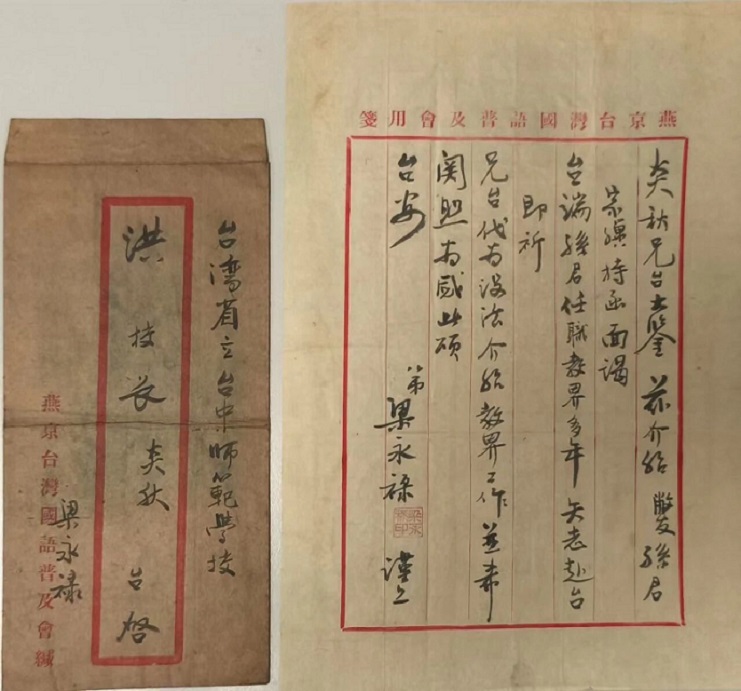 台湾省立台中師範學校
洪校長炎秋 台啓
梁永禄
燕京台灣國語普及會緘
燕京台灣國語普及會用箋
炎秋兄台大鑒 茲介紹 敝友孫君
持函面謁
台端孫君任職教界多年 矢志赴台
即祈
兄台代为設法介紹教界工作並希
関照为感此頌
台安
弟梁永禄 謹上